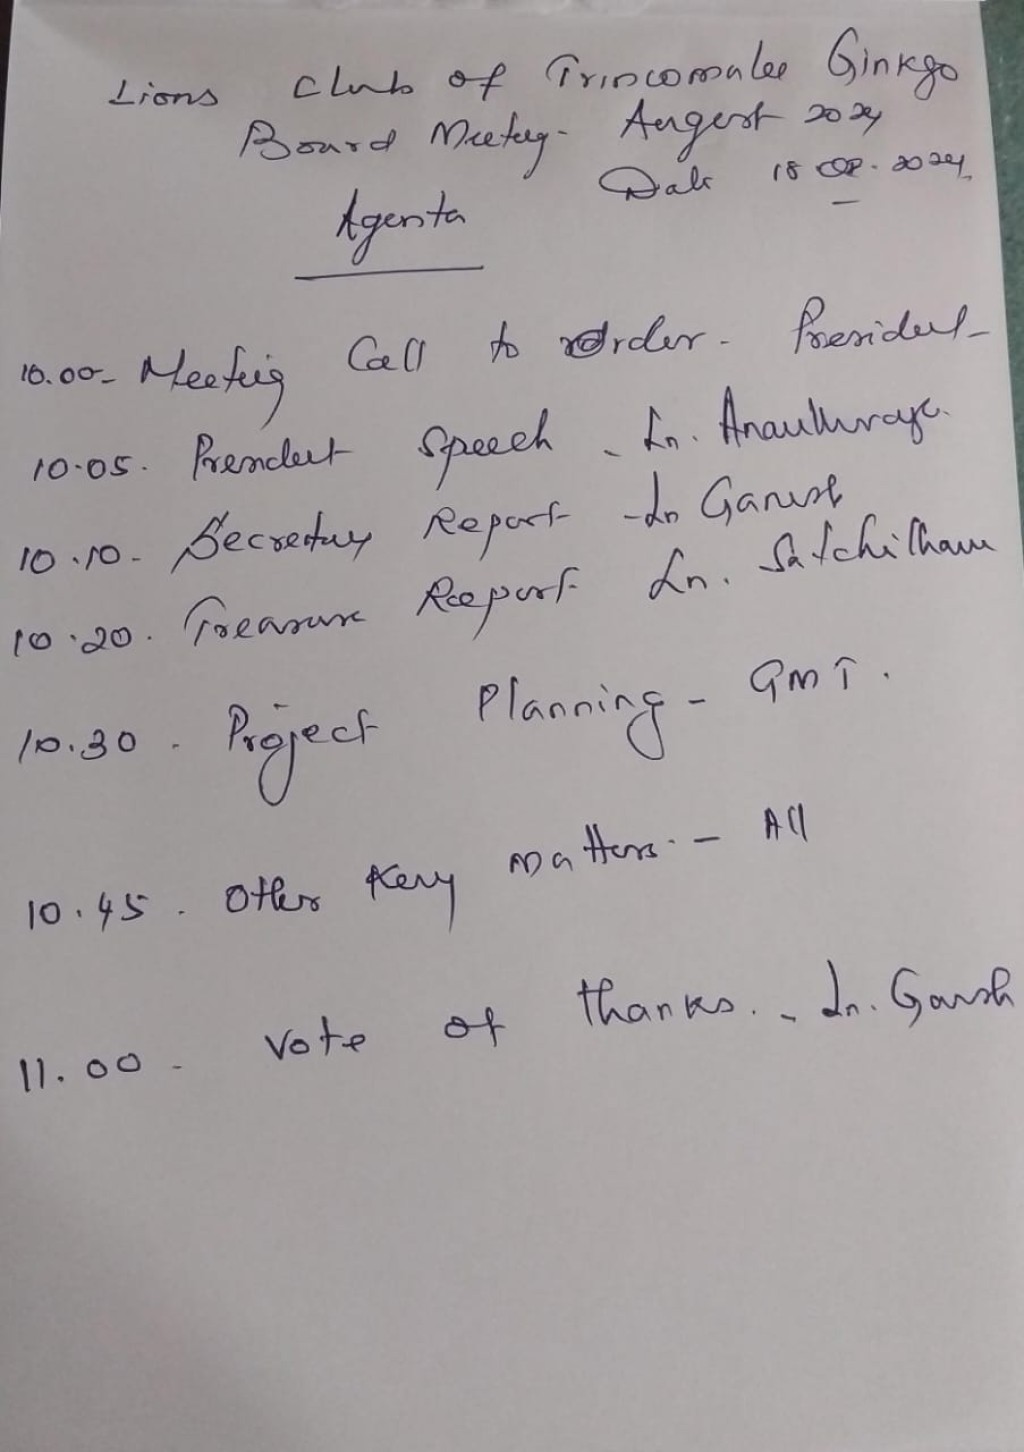 Lions Club of Trincomalee Ginkgo
Board Meeting - August 2024
Date 18.08.2024
Agenta
10.00 - Meeting Call to Order - President
10.05. President Speech - Ln.
10.10 - Secretary Report - Ln Ganesh
10.20. Treasure Report Ln.
10.30. Project Planning - GMT.
10.45. Other Key matters. - All
11.00 - Vote of thanks. - Ln. Ganesh